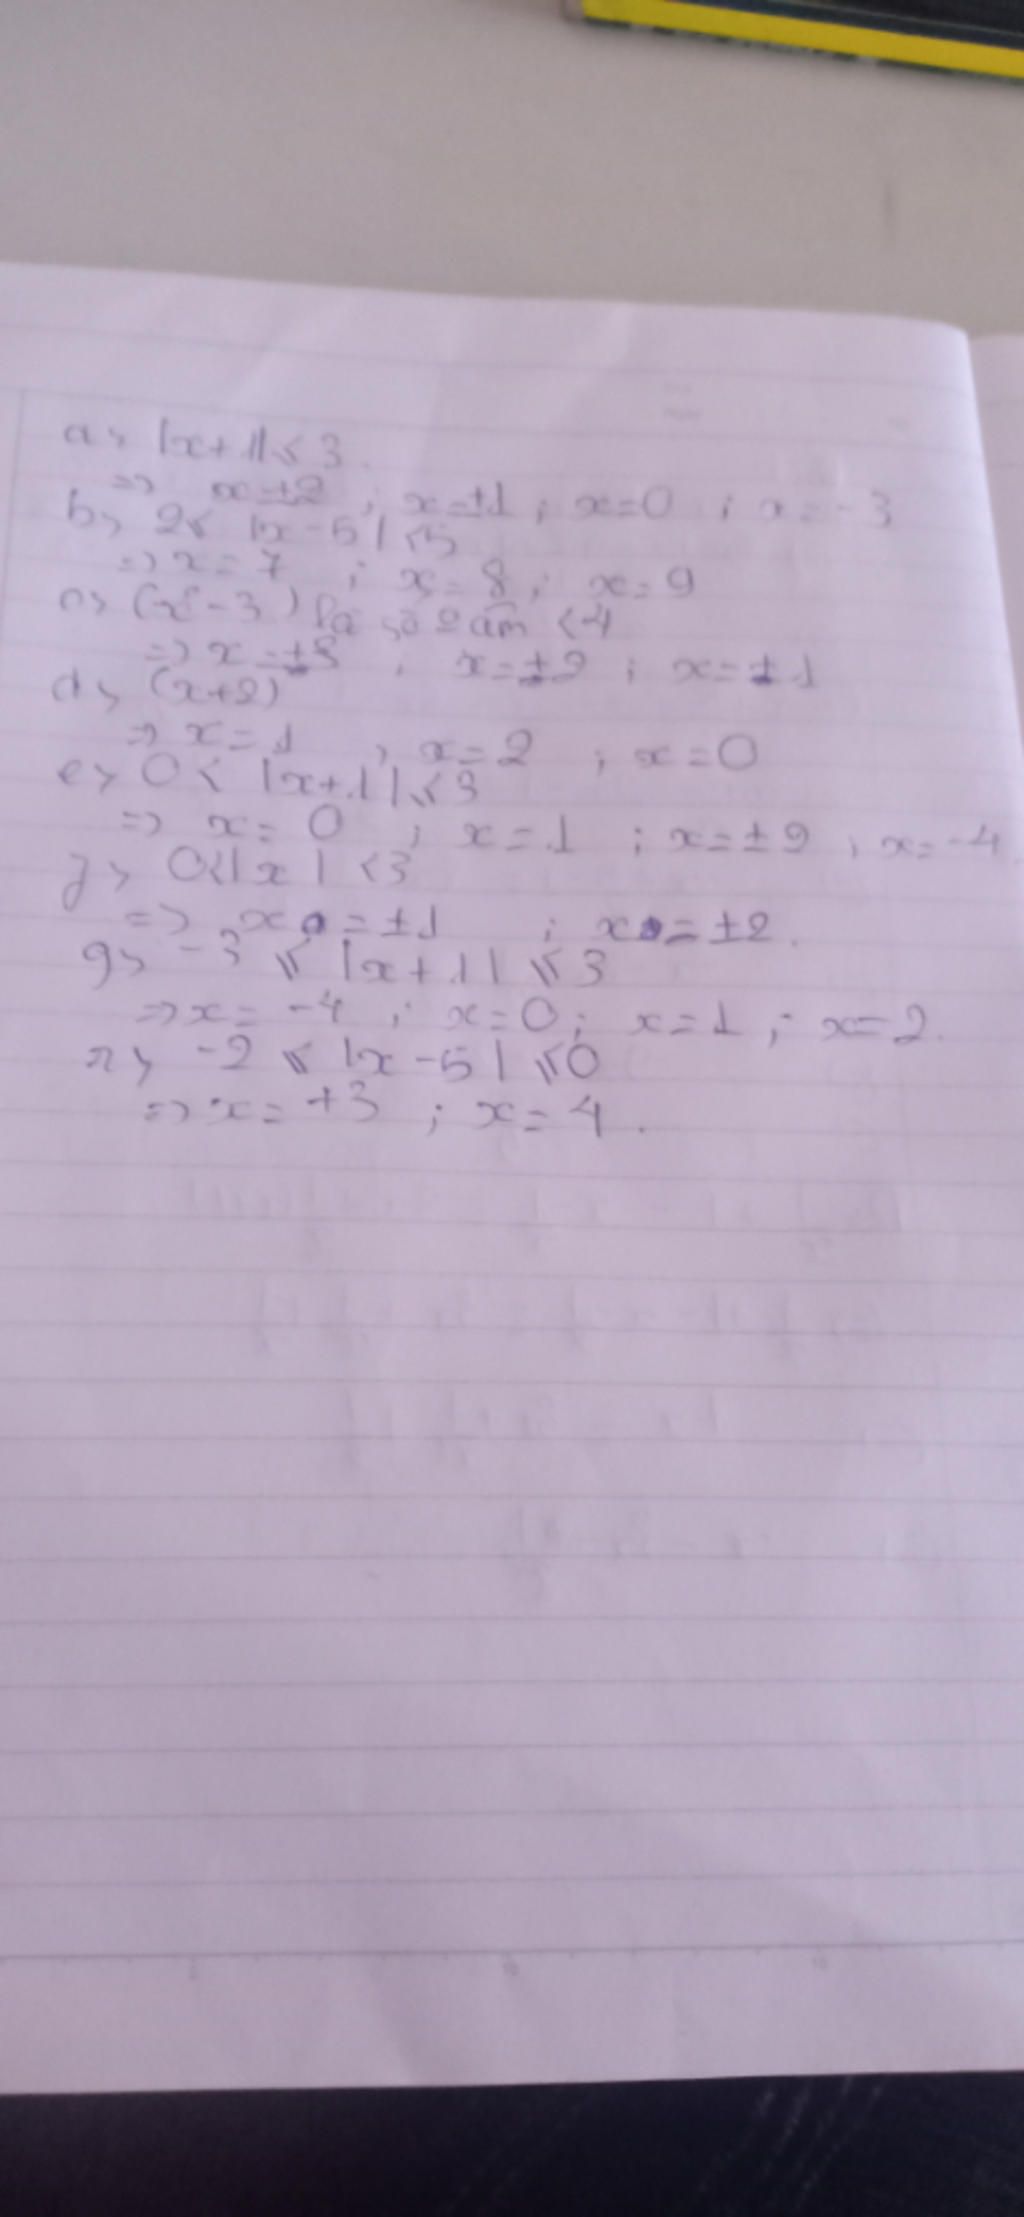 a> |x+1| ≤ 3.
=> x=±2 ; x=±1 ; x=0 ; x=-3
b> 2≤ |x-5| <5
=> x=7 ; x=8 ; x=9
c> (x-3) là số âm <4
=> x=±3 ; x=±2 ; x=±1
d> (x+2)
=> x=1 ; x=2 ; x=0
e> 0< |x+1| ≤ 3
=> x=0 ; x=1 ; x=±2 ; x=-4
f> 0<|x| <3
=> x=±1 ; x=±2.
g> -3 ≤ |x+1| ≤ 3
=> x=-4 ; x=0; x=1 ; x=2.
h> -2 ≤ |x-5| ≤ 0
=> x=+3 ; x=4.